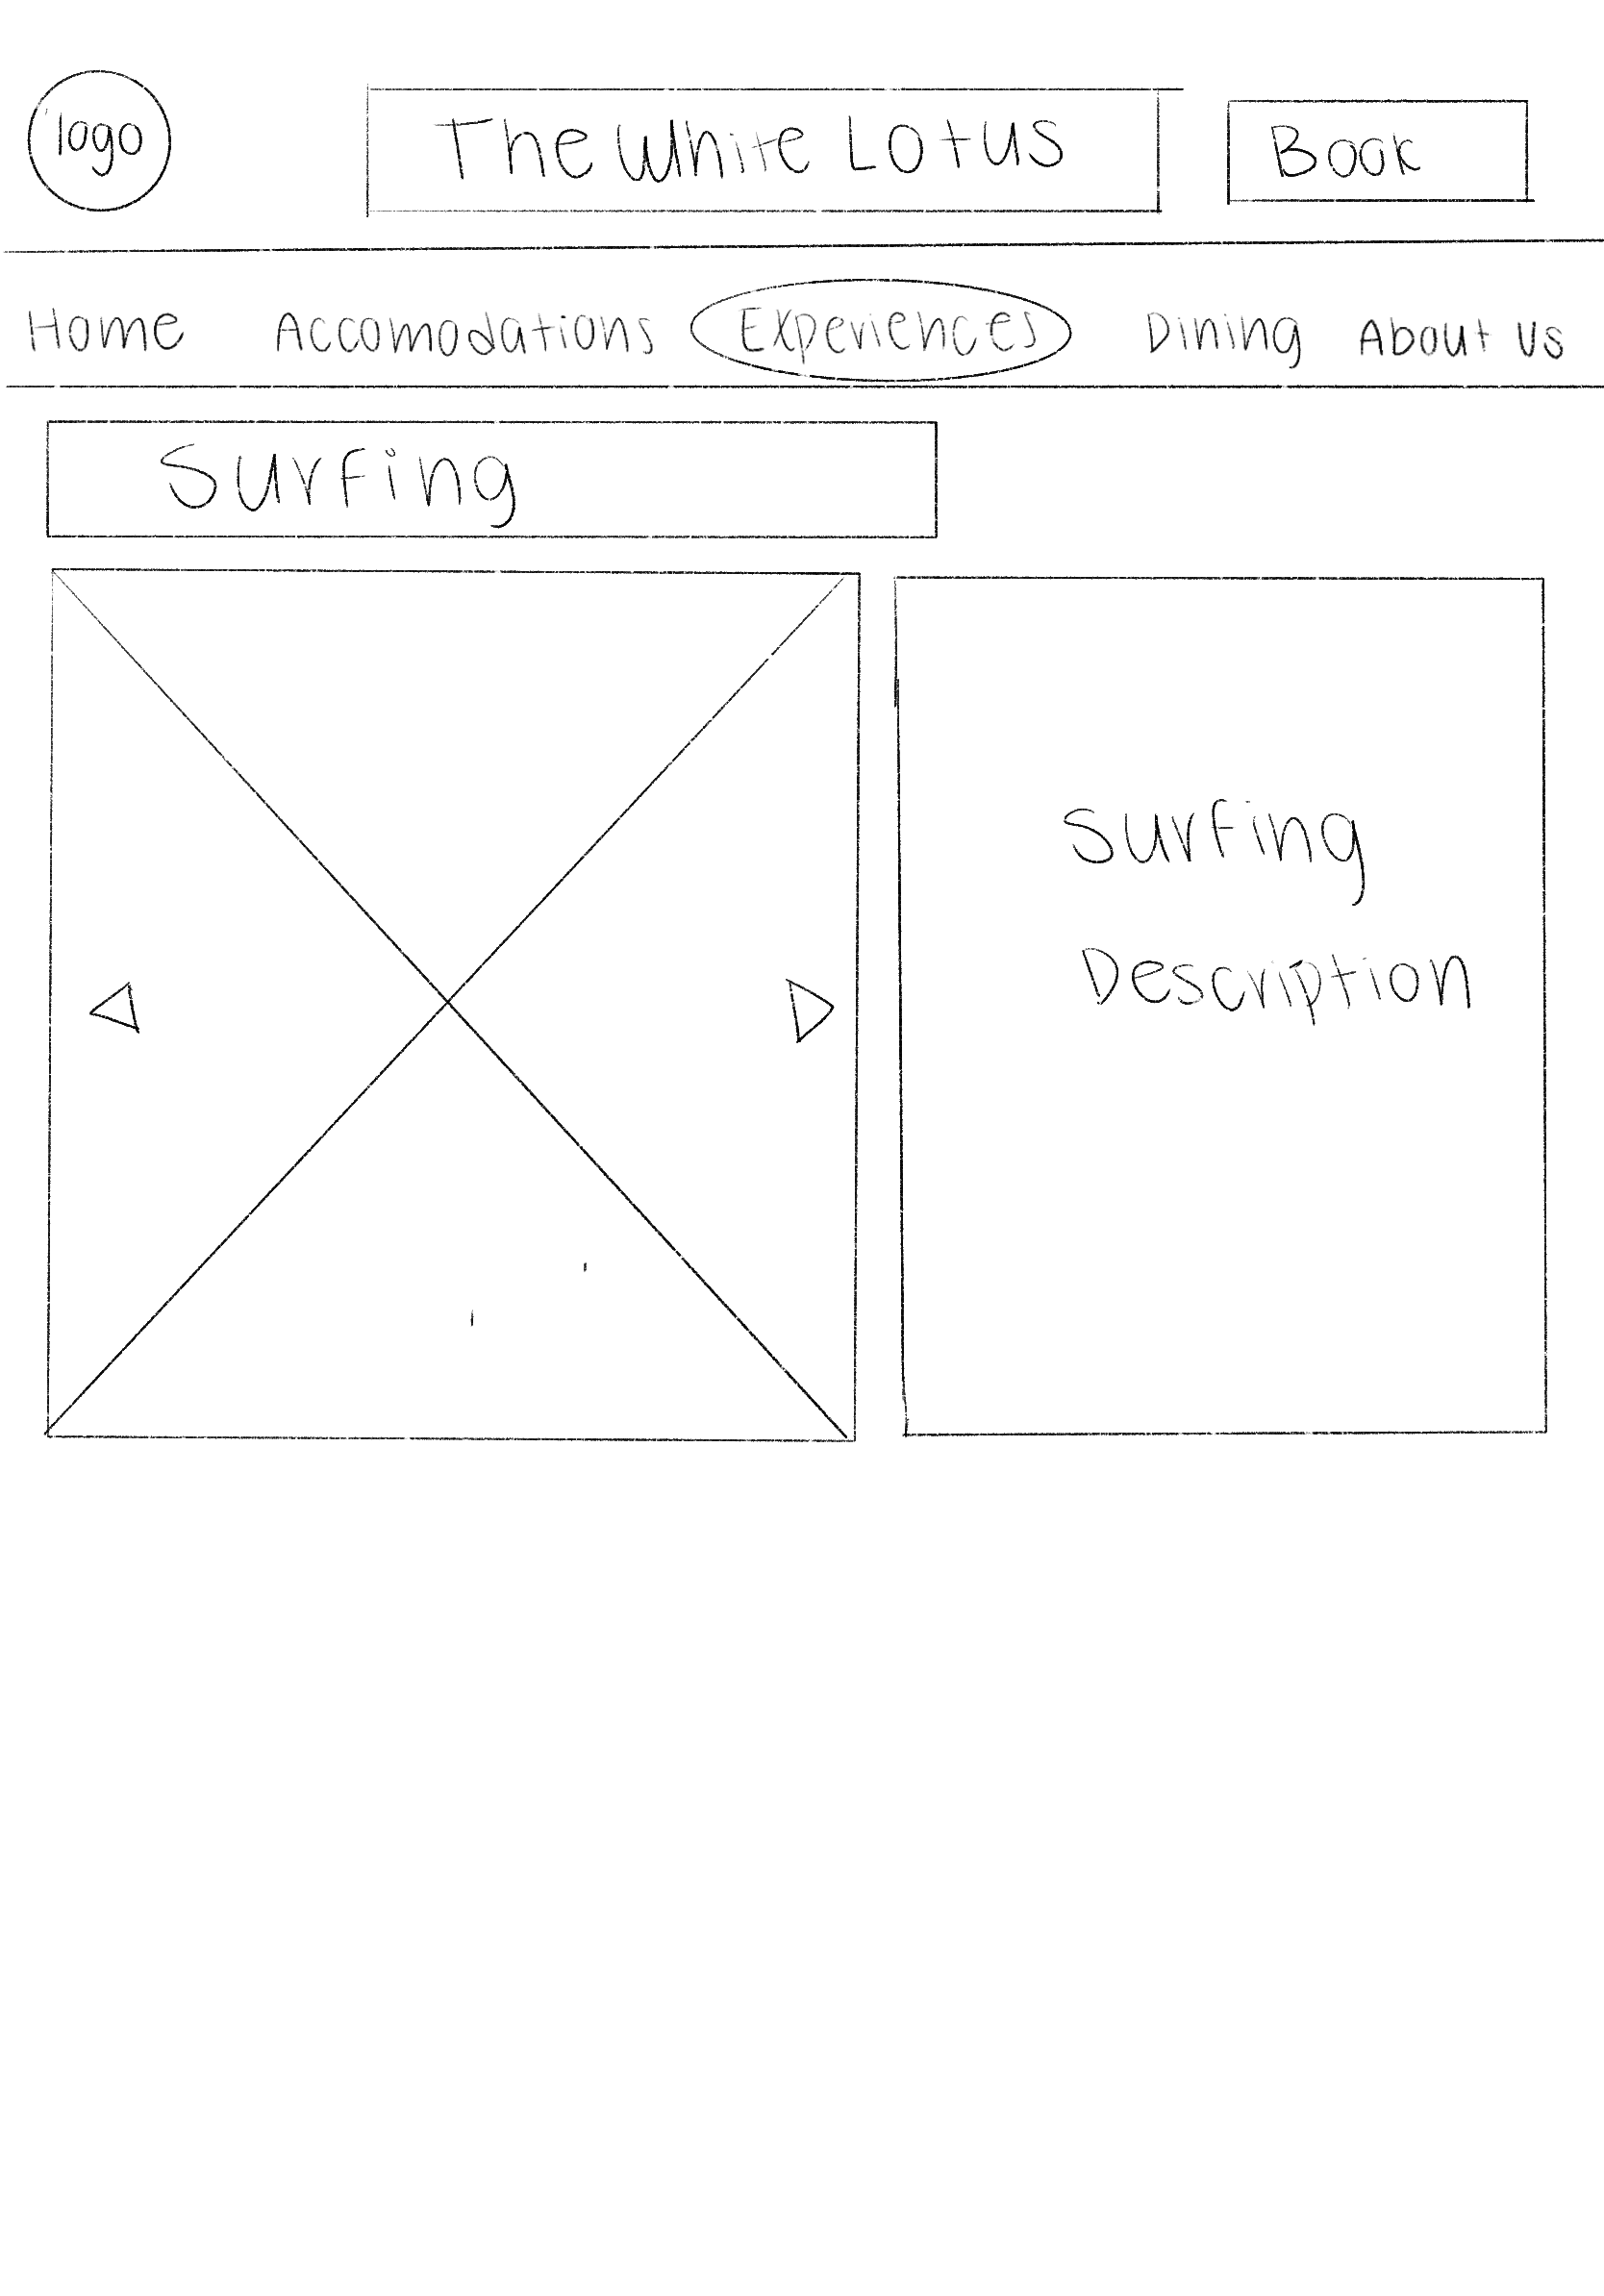 logo
The White Lotus
Book
Home Accomodations Experiences Dining About Us
Surfing
Surfing
Description